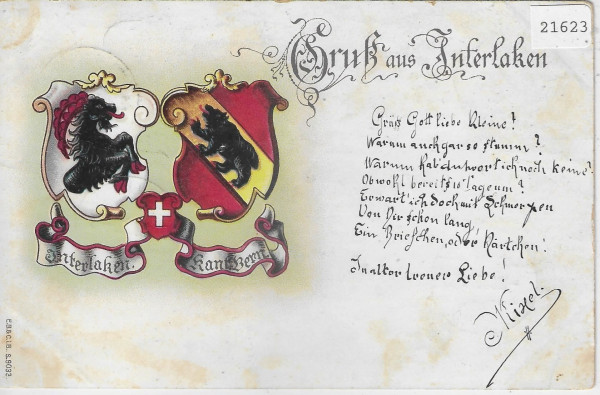 21623
Gruß aus Interlaken
Grüß Gott liebe Kleine!
Warum auch gar so stumm?
Warum hat Antwort ich noch keine?
Obwohl bereits 10 Tage um?
Erwart' ich doch mit Schmerzen
Von Dir schon lang
Ein Briefchen, oder Kärtchen!
In alter treuer Liebe!
Interlaken.
Kant. Bern.